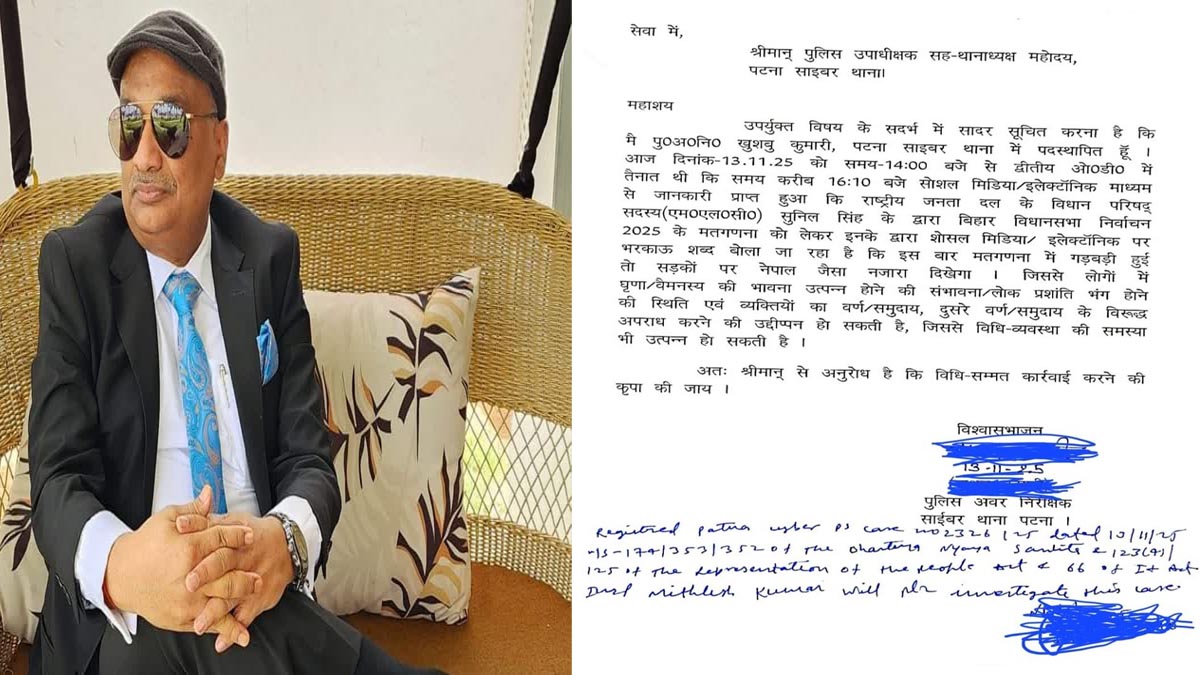 सेवा में,
श्रीमान् पुलिस उपाधीक्षक सह-थानाध्यक्ष महोदय,
पटना साइबर थाना।
महाशय
उपर्युक्त विषय के सदर्भ में सादर सूचित करना है कि
मै पु0अ0नि0 खुशबु कुमारी, पटना साइबर थाना में पदस्थापित हूँ ।
आज दिनांक-13.11.25 को समय-14:00 बजे से द्वितीय ओ0डी0 में
तैनात थी कि समय करीब 16:10 बजे सोशल मिडिया/इलेक्टॉनिक माध्यम
से जानकारी प्राप्त हुआ कि राष्ट्रीय जनता दल के विधान परिषद्
सदस्य(एम0एल0सी0) सुनिल सिंह के द्वारा बिहार विधानसभा निर्वाचन
2025 के मतगणना को लेकर इनके द्वारा शोसल मिडिया/ इलेक्टॉनिक पर
भरकाऊ शब्द बोला जा रहा है कि इस बार मतगणना में गड़बड़ी हुई
तो सड़कों पर नेपाल जैसा नजारा दिखेगा । जिससे लोगों में
घृणा/वैमनस्य की भावना उत्पन्न होने की संभावना/लोक प्रशांति भंग होने
की स्थिति एवं व्यक्तियों का वर्ण/समुदाय, दुसरे वर्ण/समुदाय के विरूद्ध
अपराध करने की उद्दीप्पन हो सकती है, जिससे विधि-व्यवस्था की समस्या
भी उत्पन्न हो सकती है ।
अतः श्रीमान् से अनुरोध है कि विधि-सम्मत कार्रवाई करने की
कृपा की जाय ।
विश्वासभाजन
13-11-25
पुलिस अवर निरीक्षक
साईबर थाना पटना ।
Registred Patna cyber PS case no 2326/25 dated 13/11/25
174/353/352 of the Bhartiya Nyaya Sanhita & 123(4)/
125 of the Representation of the People Act & 66 of It Act
DSP Mithlesh Kumar will investigate this case